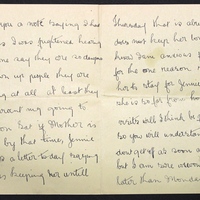 you a note saying I had
I was frightened hearing
one say they are so dangerous
own up people they are
ing at all at least they
want my going to
soon but if Mother is
by that time Jennie
a letter to day saying
keeping her untill
Thursday that is alre
does not keep her lon
how I am anxious
for the one reason
her to stay for Jennie
she is so far from ho
visits will I think be
so you will understan
don't go as soon a
but I am sure
later than Monday